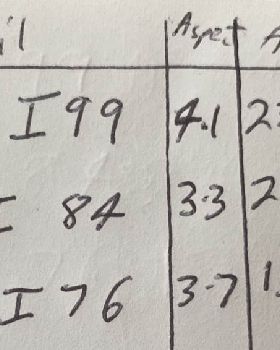 il Aspect A
I 99 4.1 2
I 84 3.3 2
I 76 3.7 1.